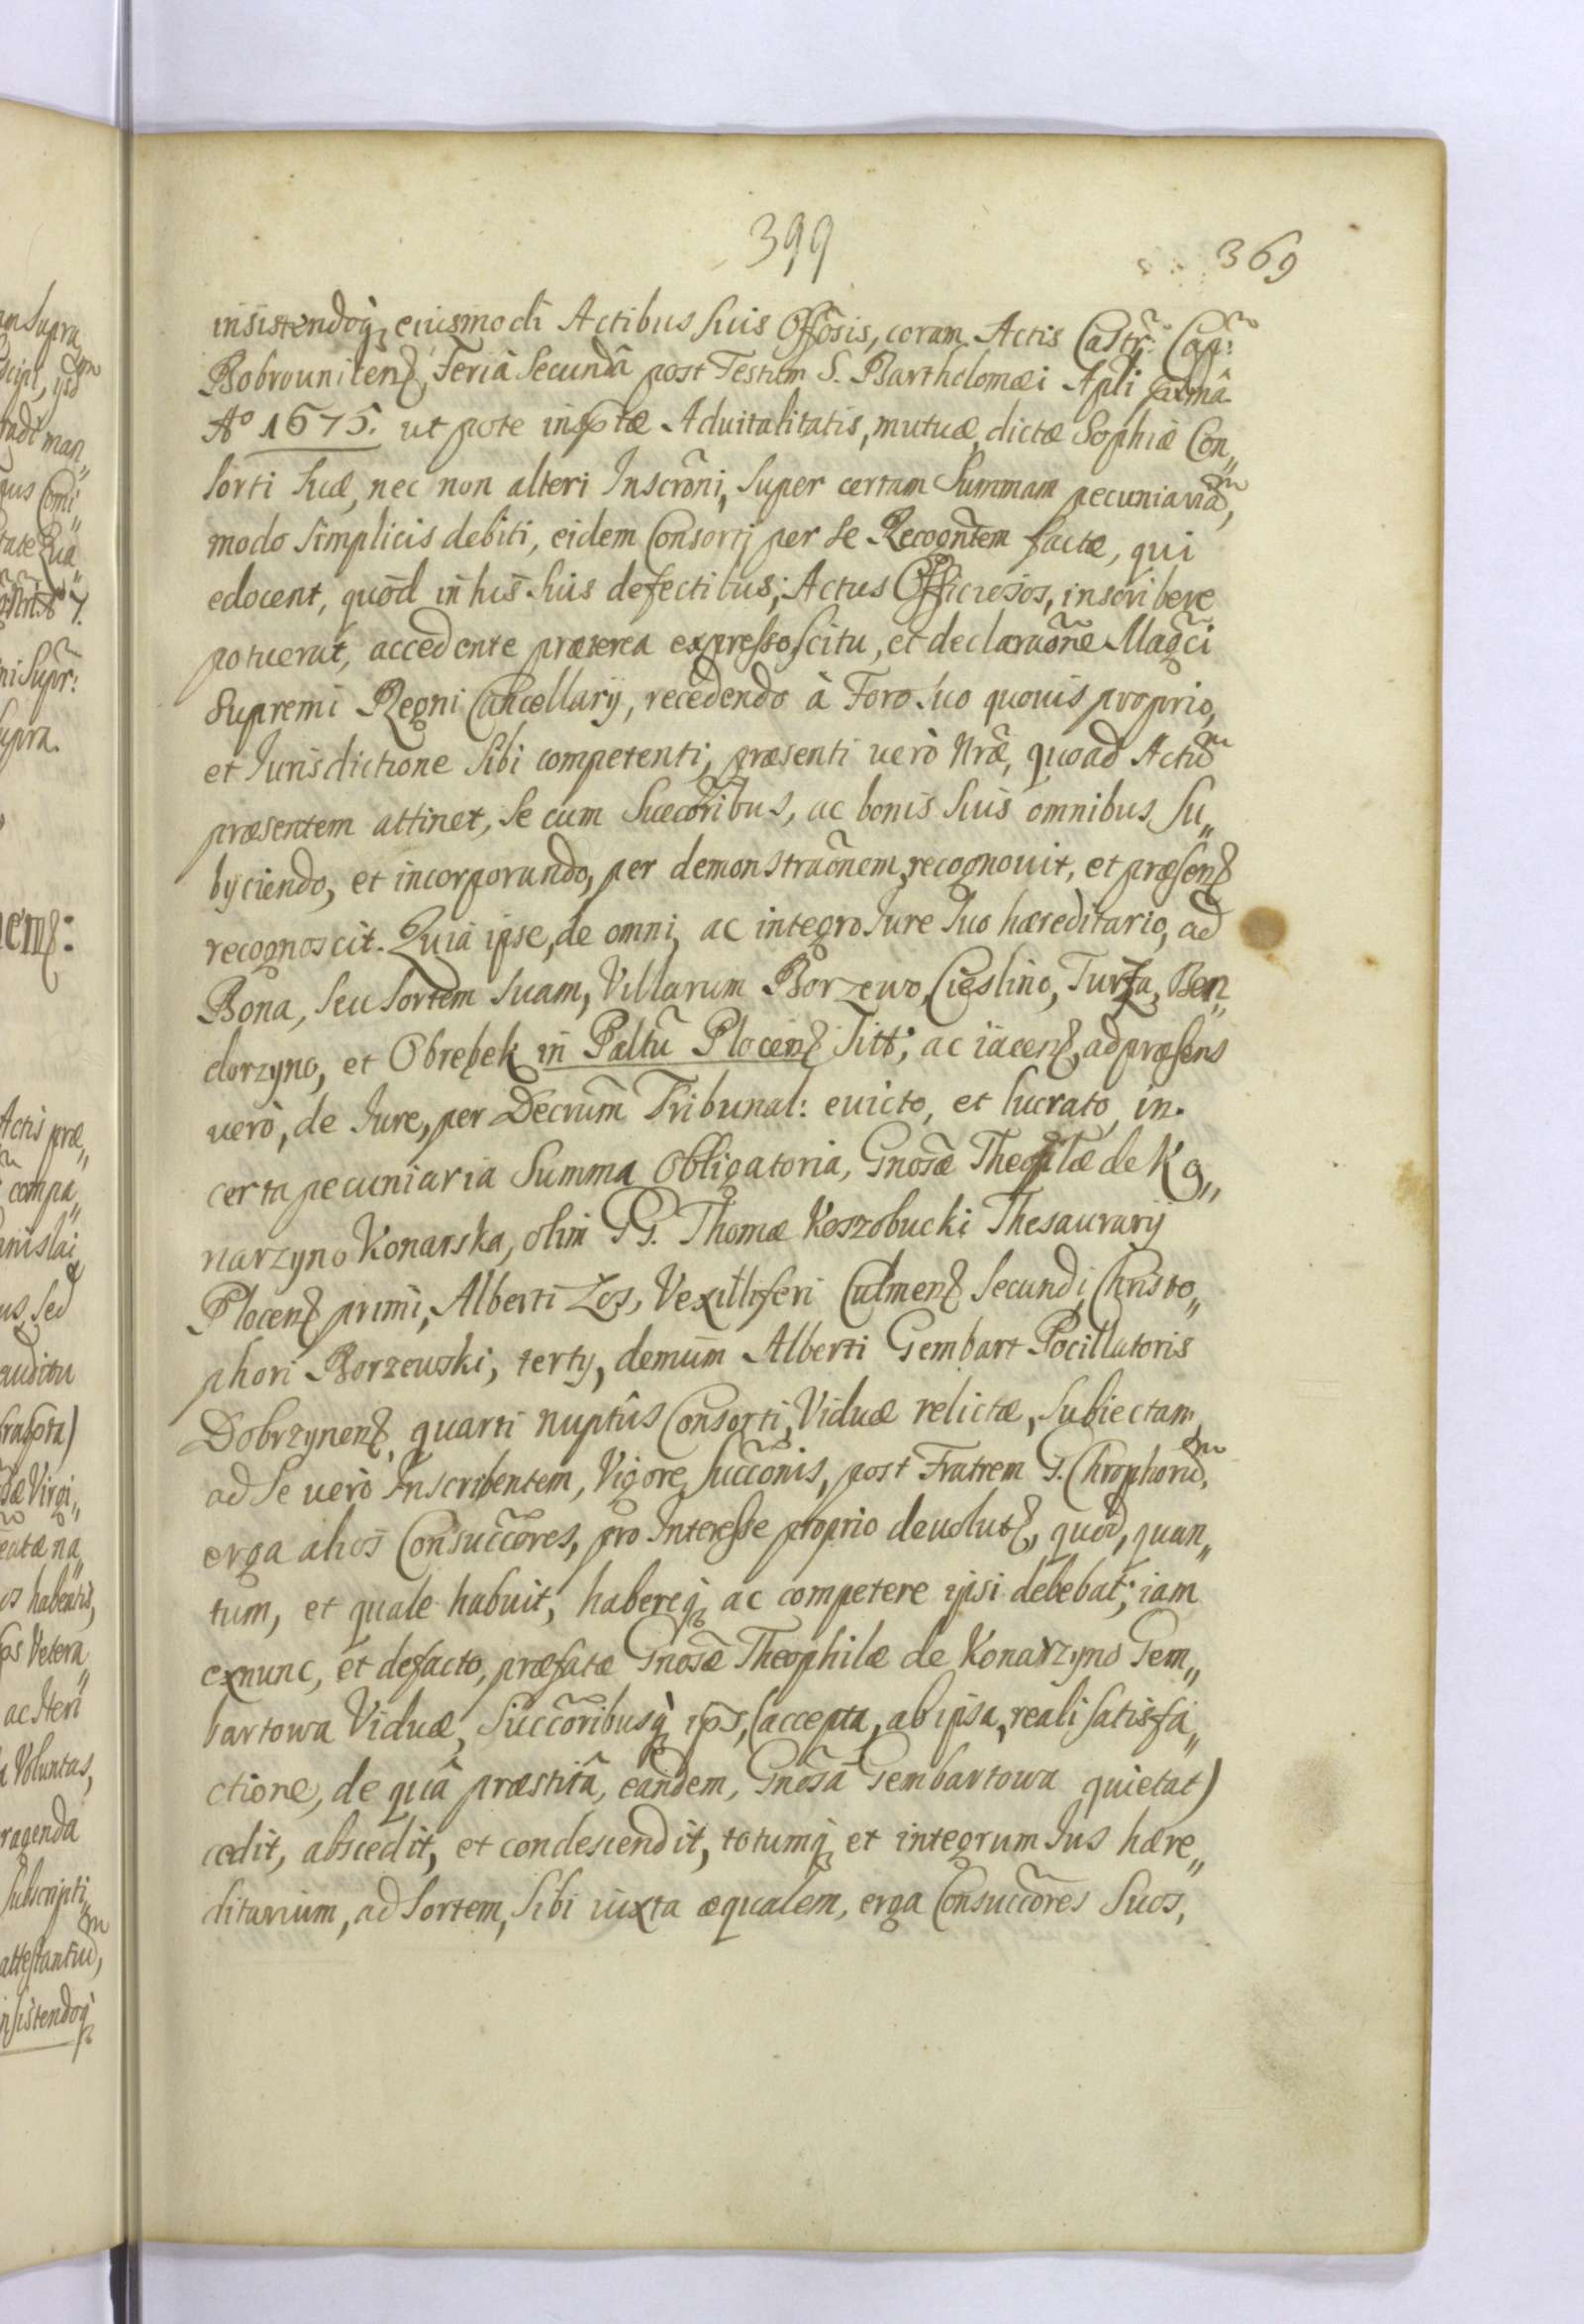 399
369
insistendoq; eiusmodi Actibus suis Offõsis, coram Actis Castr: Cap:
Bobrouniten, Feriâ Secundâ post Festum S. Bartholomæi Apli proxmâ
Aº 1675. ut pote insptæ Aduitalitatis, mutuæ, dictæ Sophiæ Con„
sorti suæ, nec non alteri Inscrõni, super certam Summam pecuniariã,
modo simplicis debiti, eidem Consorti per se Recogntem factæ, qui
edocent, quod in his suis defectibus, Actus Officiosos, inscribere
potuerit, accedente præterea expresso scitu, et declaraõne Magci
Supremi Regni Cancellarij, recedendo à Foro suo quouis proprio,
et Jurisdictione sibi competenti, præsenti uerò Nræ, quoad Actũ
præsentem attinet, se cum Succoribus, ac bonis suis omnibus su„
byciendo, et incorporando, per demonstraõnem recognouit, et præsen
recognoscit. Quia ipse, de omni, ac integro Jure suo hæreditario, ad
Bona, seu sortem suam, Villarum Borzewo, Cieslino, Turza, Ben„
dorzyno, et Obrębek in Paltũ Plocen sitt; ac iacen, ad præsens
uerò, de Jure, per Decrũm Tribunal: euicto, et lucrato, in
certa pecuniaria Summa Obligatoria, Gnosæ Theophilæ de Ko„
narzyno Konarska, olim GG. Thomæ Koszobucki Thesaurarij
Plocen primi, Alberti Zos, Vexilliferi Culmen secundi, Christo„
phori Borzewski, tertij, demum Alberti Gembart Pocillatoris
Dobrzynen, quarti nuptûs Consorti, Viduæ relictæ, subiectam,
ad se uerò Inscribentem, Vigore Succõnis, post Fratrem G. Chrophorũ,
erga alios Consuccores, pro Interesse proprio deuolut, quod, quan„
tum, et quale habuit, habereq; ac competere ipsi debebat; iam
exnunc, et defacto, præfatæ Gnosæ Theophilæ de Konarzyno Gem„
bartowa Viduæ, Succoribusq; ips, (accepta, ab ipsa, reali satisfa„
ctione, de quâ præstitâ, eandem, Gnosã Gembartowa quietat)
cedit, abscedit, et condescendit, totumq; et integrum Jus hære„
ditarium, ad sortem, sibi iuxta æqualem, erga Consuccores suos,